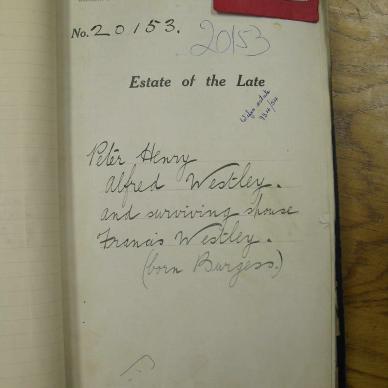 No. 20153.
20153
Estate of the Late
Wifes estate
Peter Henry
Alfred Westley.
and surviving spouse
Francis Westley.
(born Burgess.)